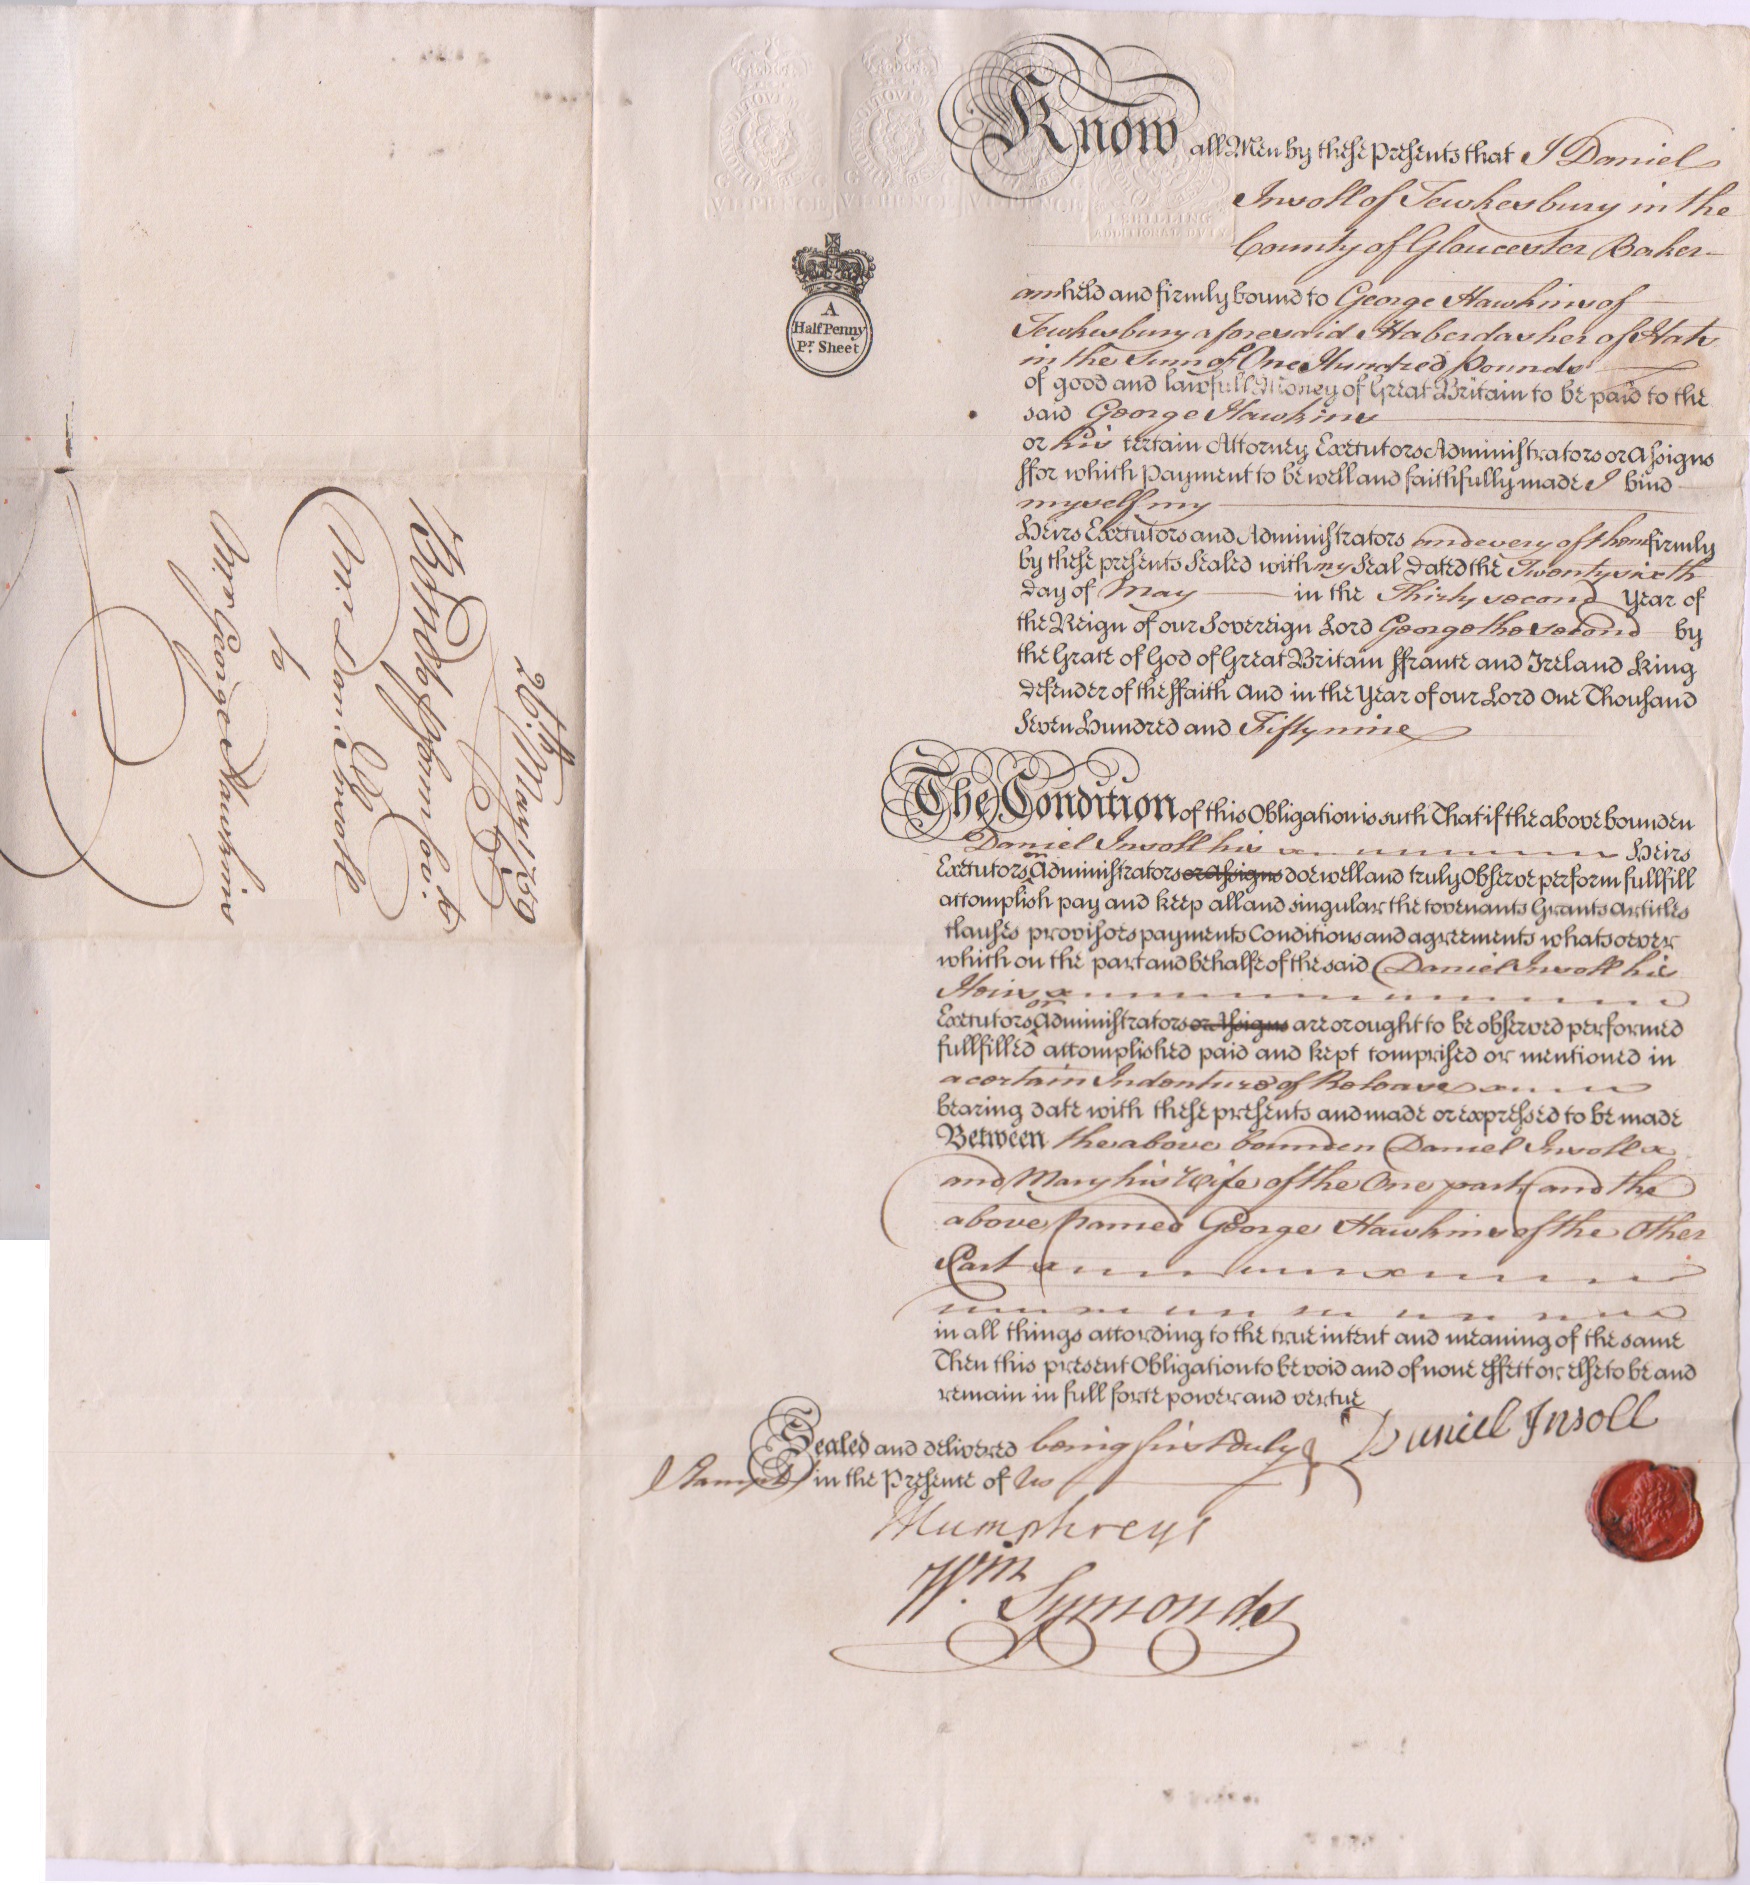 Know all Men by these presents that I Daniel
Insoll of Tewkesbury in the
County of Gloucester Baker
am held and firmly bound to George Hawkins of
Tewkesbury aforesaid Haberdasher of Hats
in the Sum of One Hundred Pounds
of good and lawfull Money of Great Britain to be paid to the
said George Hawkins
or his certain Attorney Executors Administrators or Assigns
ffor which Payment to be well and faithfully made I bind
myself my
Heirs Executors and Administrators and every of them firmly
by these presents Sealed with my Seal Dated the Twenty sixth
Day of May in the Thirty second Year of
the Reign of our Sovereign Lord George the second by
the Grace of God of Great Britain ffrance and Ireland King
defender of the ffaith and in the Year of our Lord One Thousand
Seven Hundred and Fifty nine
The Condition of this Obligation is such That if the above bounden
Daniel Insoll his Heirs
Executors or Administrators or Assigns doe well and truly Observe perform fullfill
accomplish pay and keep all and singular the covenants Grants articles
clauses provisoes payments Conditions and agreements whatsoever
which on the part and behalfe of the said Daniel Insoll his
Heirs
Executors or Administrators or Assigns are or ought to be observed performed
fullfilled accomplished paid and kept comprised or mentioned in
a certain Indenture of Release
bearing date with these presents and made or expressed to be made
Between the above bounden Daniel Insoll
and Mary his Wife of the One part and the
above named George Hawkins of the Other
Part
in all things according to the true intent and meaning of the same
Then this present Obligation to be void and of none effect or else to be and
remain in full force power and vertue
Daniel Insoll
Sealed and delivered being first duly
Stampt in the Presence of Us
Humphreys
Wm. Symonds
A
Half Penny
Pr. Sheet
VI PENCE
VI PENCE
VI PENCE
I SHILLING
ADDITIONAL DUTY
26th. May 1759
Bond to perform Cov.ts
Mr. Dan. Insoll
to
Mr. George Hawkins